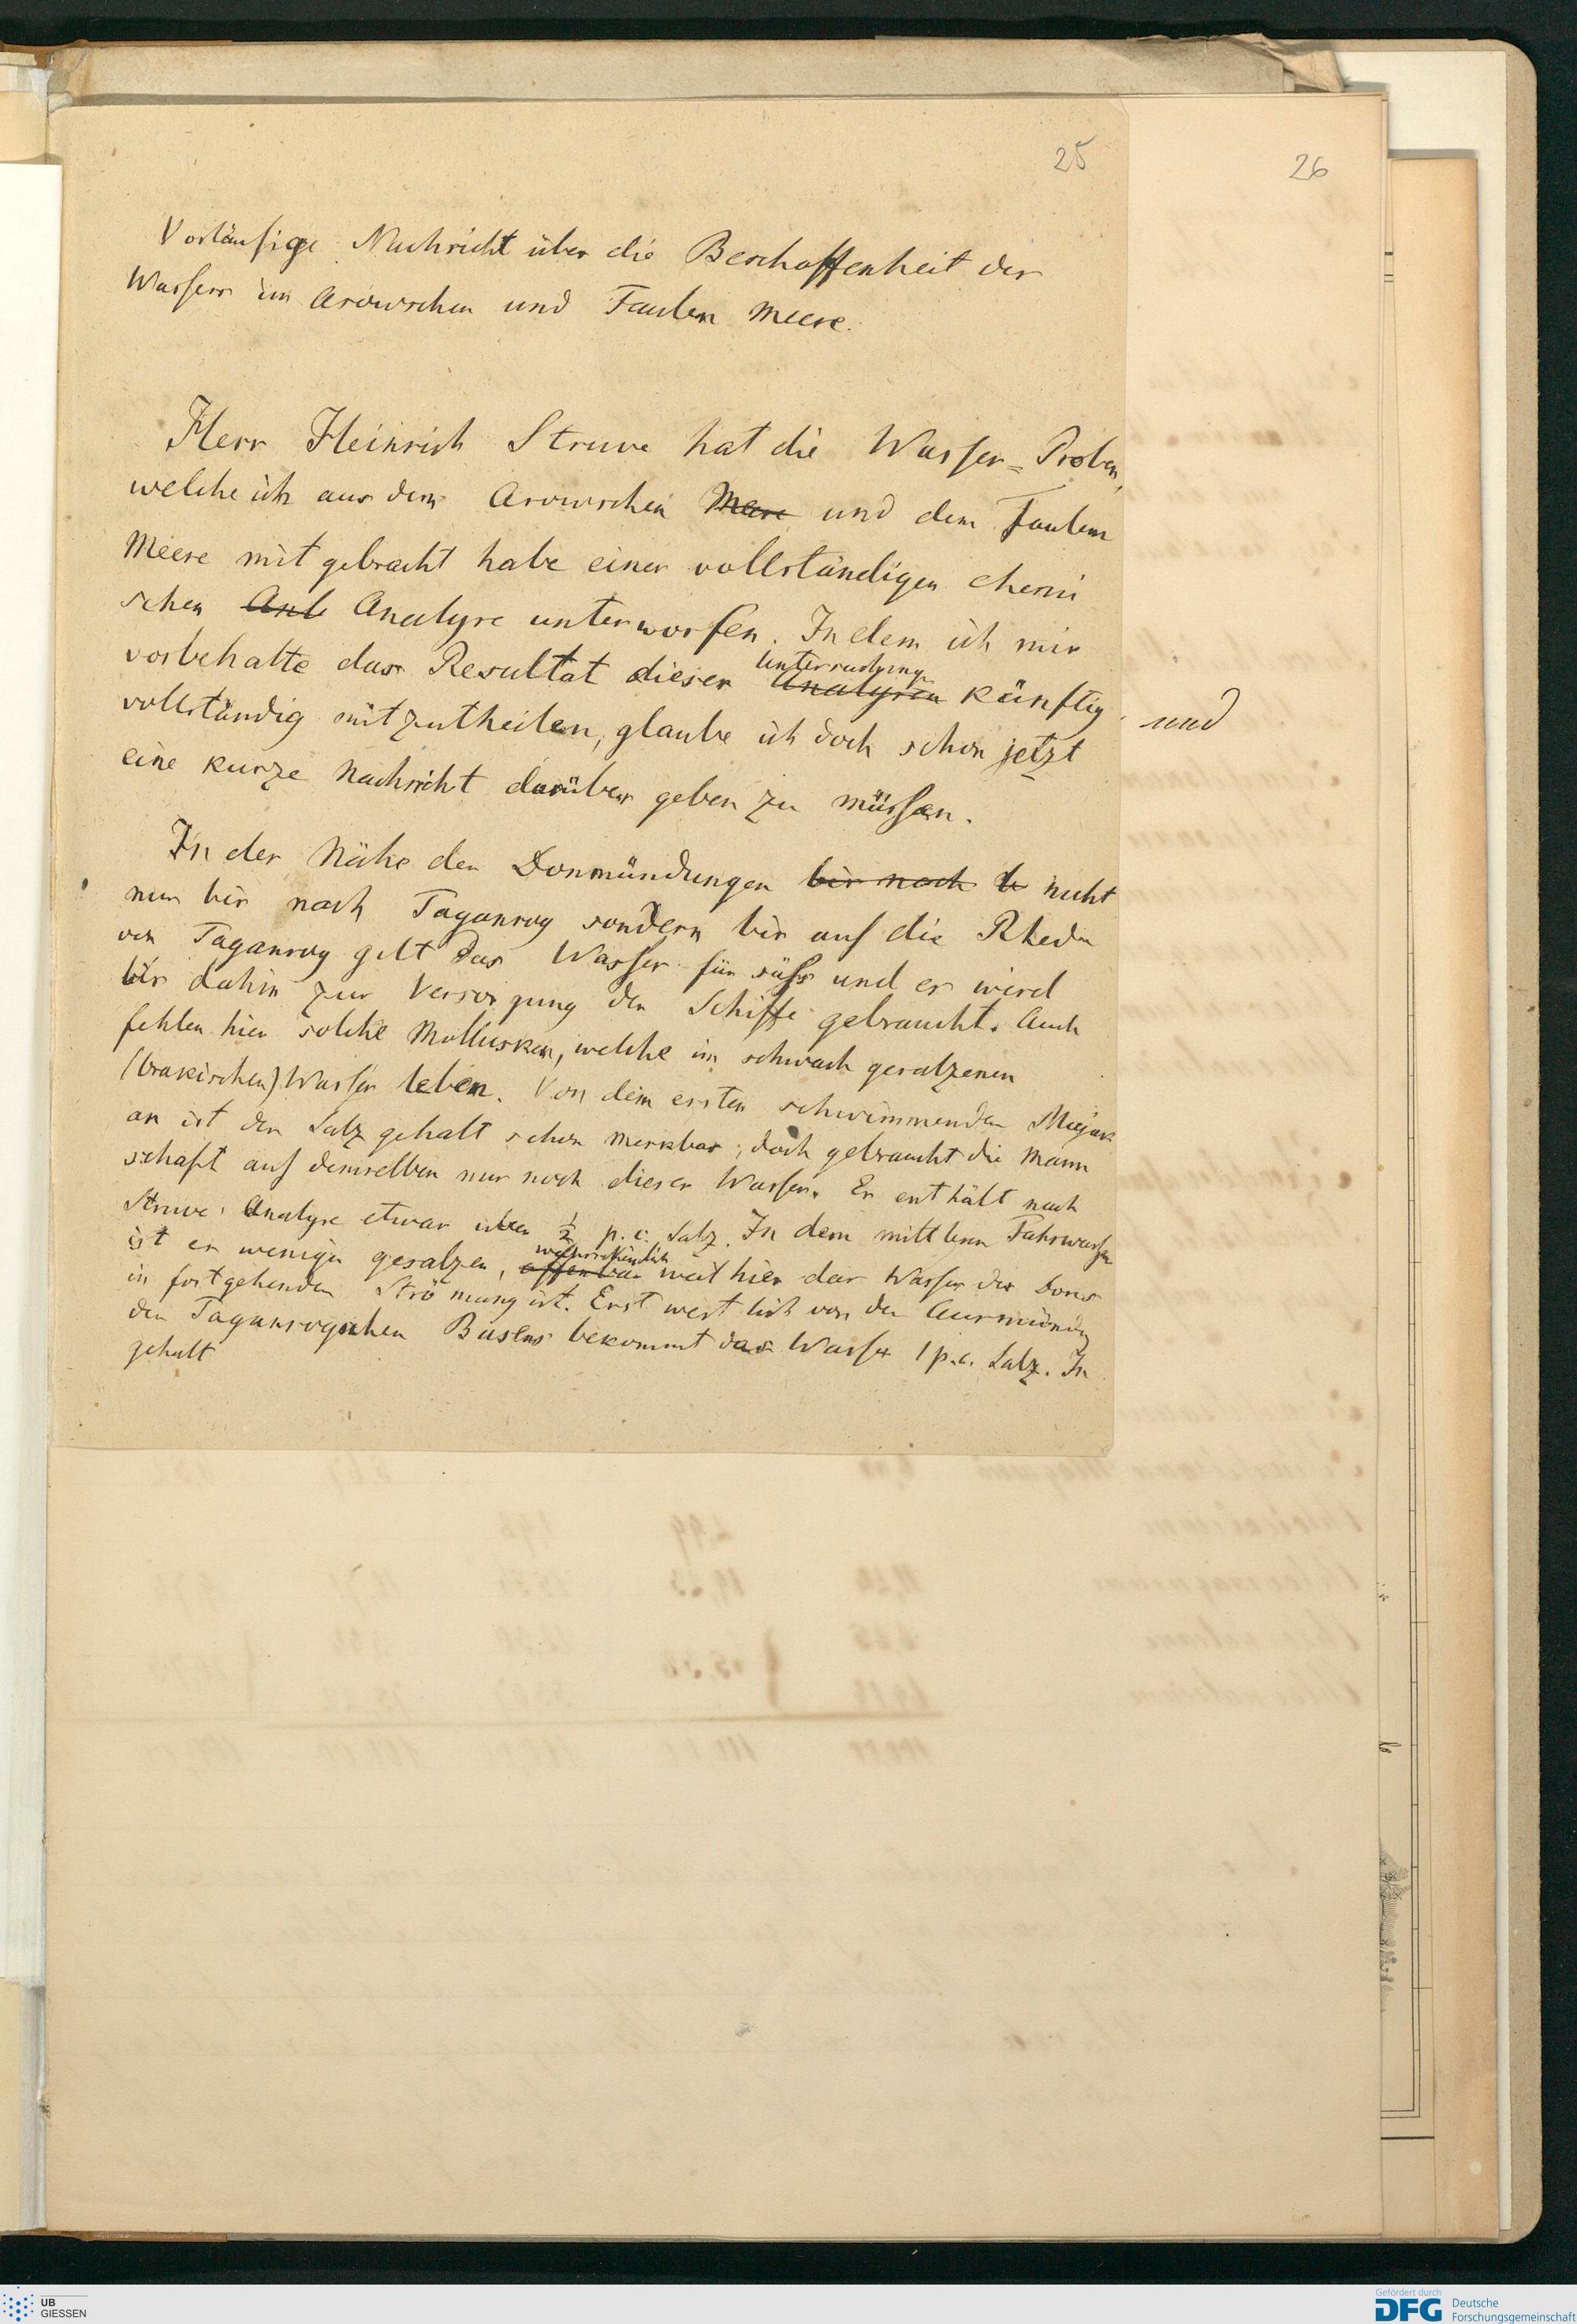 25
26
Vorläufige Nachricht über die Beschaffenheit des
Wassers im Asowschen und Faulen Meere.
Herr Heinrich Struve hat die Wasser=Proben,
welche ich aus dem Asowschen Meere und dem Faulem
Meere mitgebracht habe einer vollständigen chemi
schen Anl Analyse unterworfen. Indem ich mir
vorbehalte das Resultat dieser Analysen Untersuchung künftig
vollständig mitzutheilen, glaube ich doch schon jetzt
und
eine kurze Nachricht darüber geben zu müssen.
In der Nähe der Donmündungen bis nach b nicht
nur bis nach Taganrog sondern bis auf die Rhede
von Taganrog gilt das Wasser für süss und es wird
bis dahin zur Versorgung der Schiffe gebraucht. Auch
fehlen hier solche Mollusken, welche im schwach gesalzenen
(brakischen) Wasser leben. Von dem ersten schwimmenden Majak
an ist der Salzgehalt schon merkbar; doch gebraucht die Mann
schaft auf demselben nur noch dieses Wasser. Er enthält nach
Struve's Analyse etwas über ½ p. c. Salz. In dem mittlern Fahrwasser
ist es weniger gesalzen, offenbar wahrscheinlich weil hier das Wasser des Dons
in fortgehender Strömung ist. Erst westlich von der Ausmündg
des Taganrogschen Busens bekommt das Wasser 1 p.c. Salz. In
gehalt
UB
GIESSEN
Gefördert durch
DFG Deutsche
Forschungsgemeinschaft